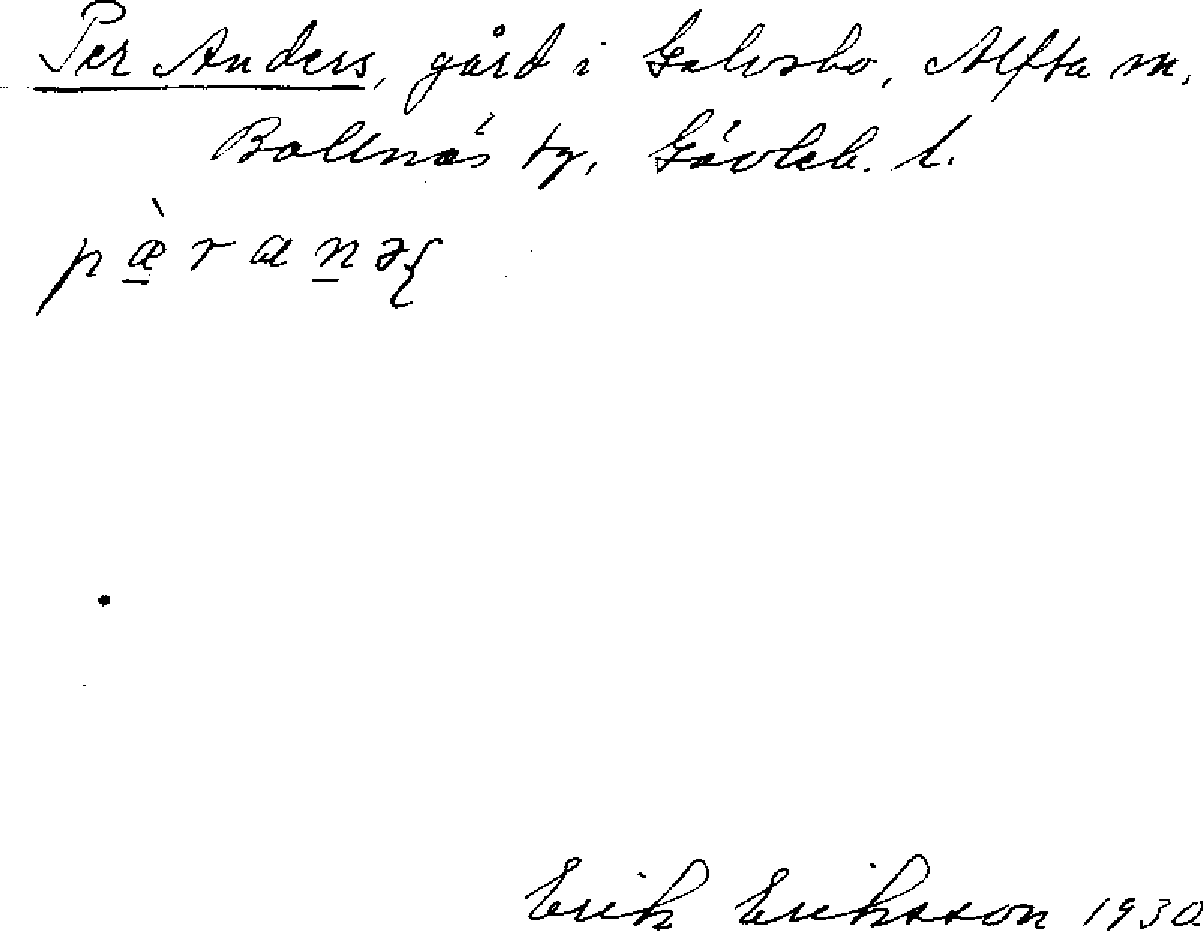 Per Anders, gård i Galvsbo, Alfta sn,
Bollnäs tg, Gävleb. l.
pæ̠̀ran̠əʂ
Erik Eriksson 1930